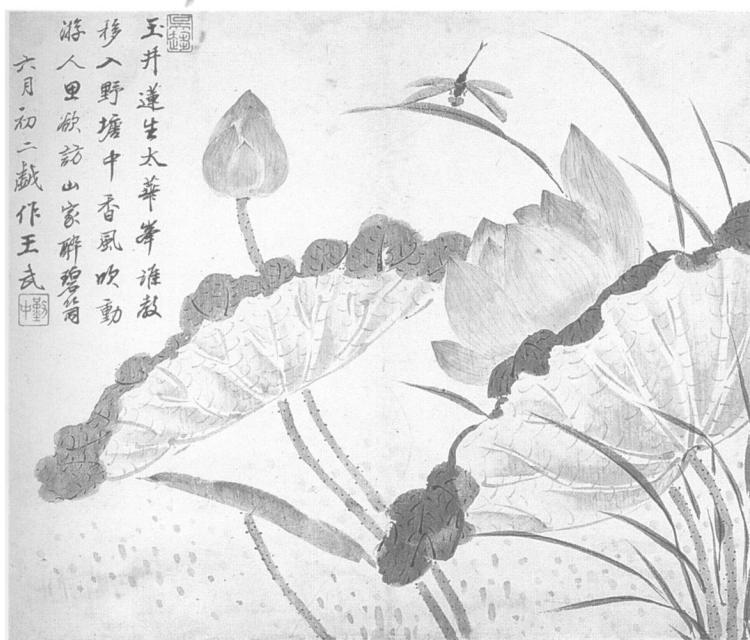 玉井蓮生太華峯誰教
移入野塘中香風吹動
游人思欲訪山家醉碧筩
六月初二戲作王武
勤中